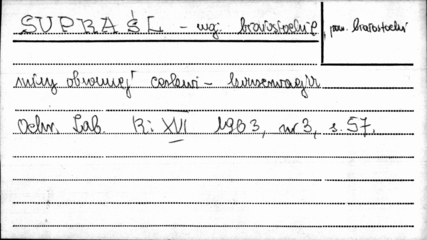 SUPRAŚL - woj. białostockie
pow. białostocki
ruiny obronnej cerkwi - konserwacja
Ochr. Zab. R: XVI 1963, nr 3, s. 57.